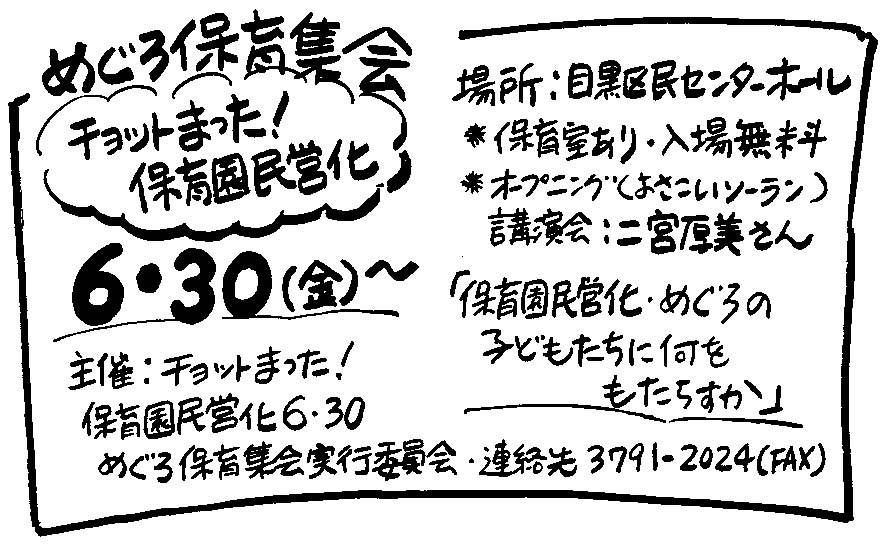 めぐろ保育集会
チョットまった!
保育園民営化
6・30(金)〜
主催:チョットまった!
保育園民営化6・30
めぐろ保育集会実行委員会・連絡先3791-2024(FAX)
場所:目黒区民センターホール
*保育室あり・入場無料
*オープニング(よさこいソーラン)
講演会:二宮厚美さん
「保育園民営化・めぐろの
子どもたちに何を
もたらすか」